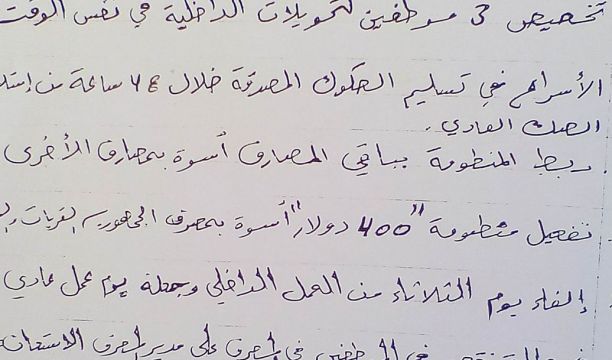 تخصيص 3 موظفين لتحويلات الداخلية في نفس الوقت
الأسراع في تسليم الصكوك المصدقة خلال 48 ساعة من إستلا
الصك العادي.
ربط المنظومة بباقي المصارف أسوة بمصارف الأخرى
تفعيل منظومة "400 دولار" أسوة بمصرف الجمهورية
إلغاء يوم الثلاثاء من العمل الداخلي وجعله يوم عمل عادي
في المصرف على مدير المصرف الاستعانة